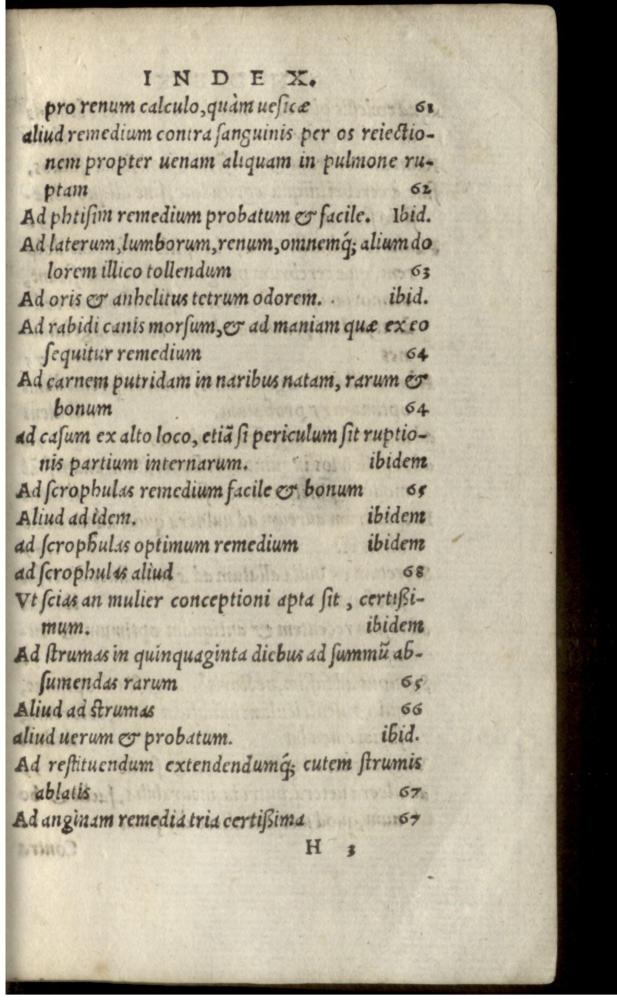 INDEX.
pro renum calculo, quàm uesicæ 61
aliud remedium contra sanguinis per os reiectio-
nem propter uenam aliquam in pulmone ru-
ptam 62
Ad phtisim remedium probatum & facile. Ibid.
Ad laterum, lumborum, renum, omnemq́; alium do
lorem illico tollendum 63
Ad oris & anhelitus tetrum odorem. ibid.
Ad rabidi canis morsum, & ad maniam quæ ex eo
sequitur remedium 64
Ad carnem putridam in naribus natam, rarum &
bonum 64
ad casum ex alto loco, etiã si periculum sit ruptio-
nis partium internarum. ibidem
Ad scrophulas remedium facile & bonum 65
Aliud ad idem. ibidem
ad scrophulas optimum remedium ibidem
ad scrophulas aliud 68
Vt scias an mulier conceptioni apta sit, certißi-
mum. ibidem
Ad strumas in quinquaginta diebus ad summũ ab-
sumendas rarum 65
Aliud ad strumas 66
aliud uerum & probatum. ibid.
Ad restituendum extendendumq́; cutem strumis
ablatis 67
Ad anginam remedia tria certißima 67
H 3